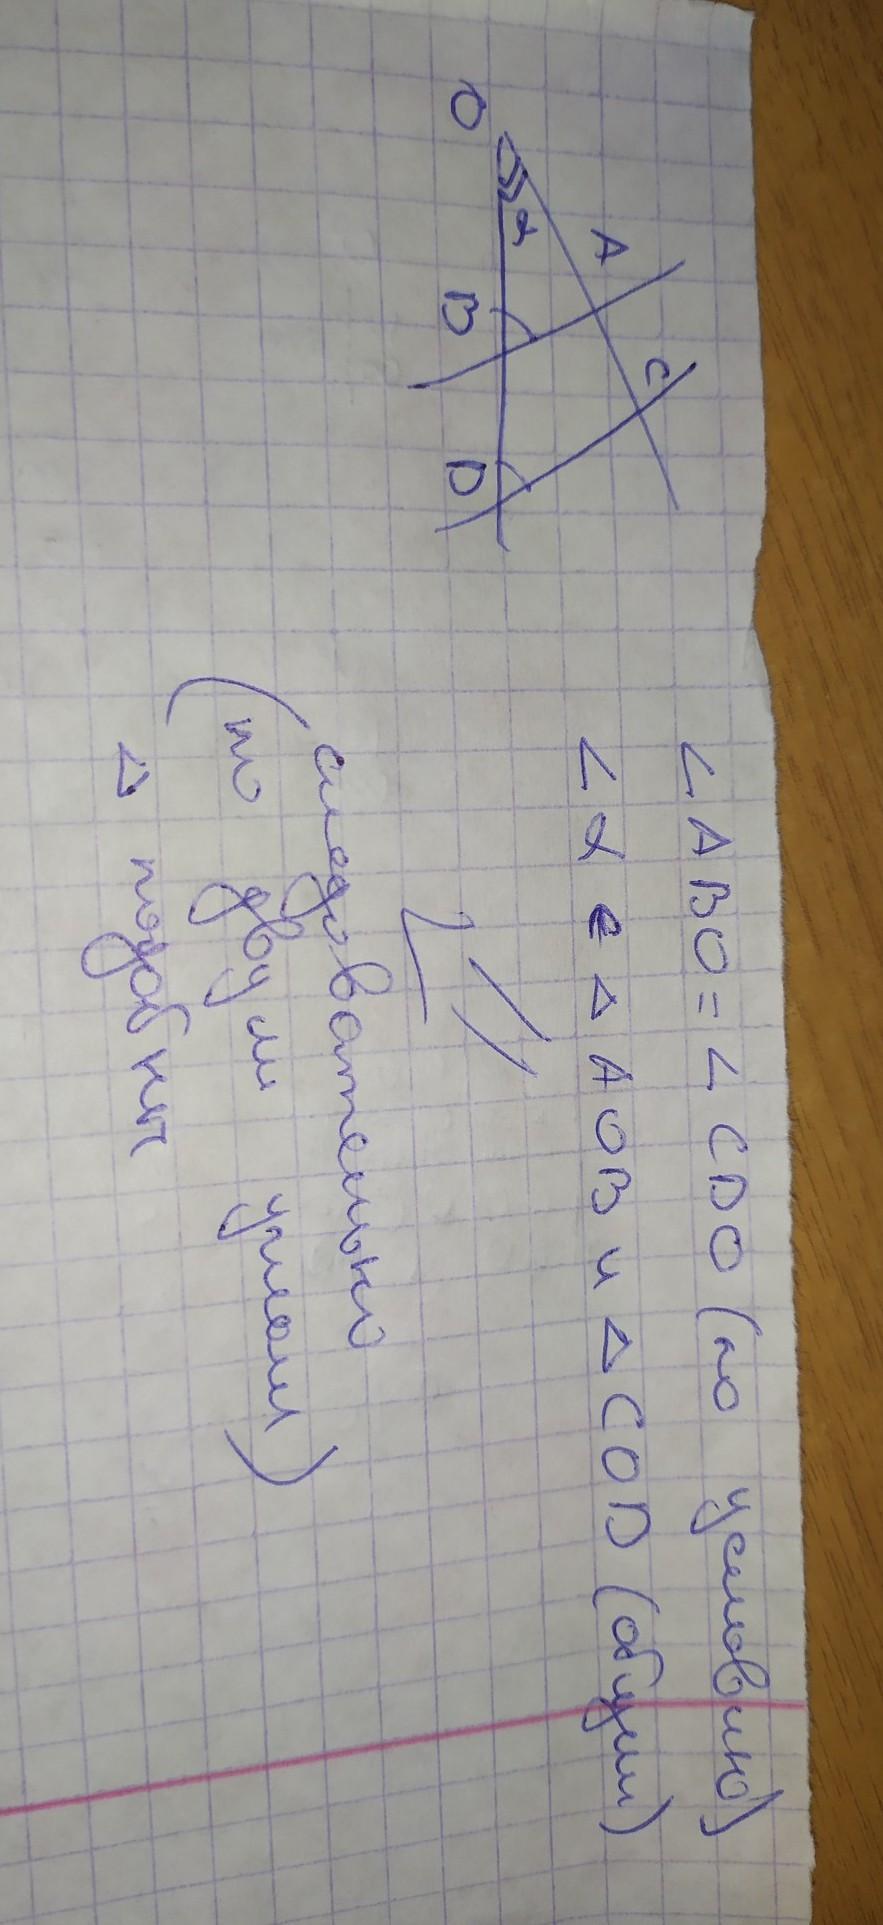 O
α
A
B
C
D
∠ABO=∠CDO (по условию)
∠α ∈ ΔAOB и ΔCOD (общий)
следовательно
(по двум углам)
Δ подобны